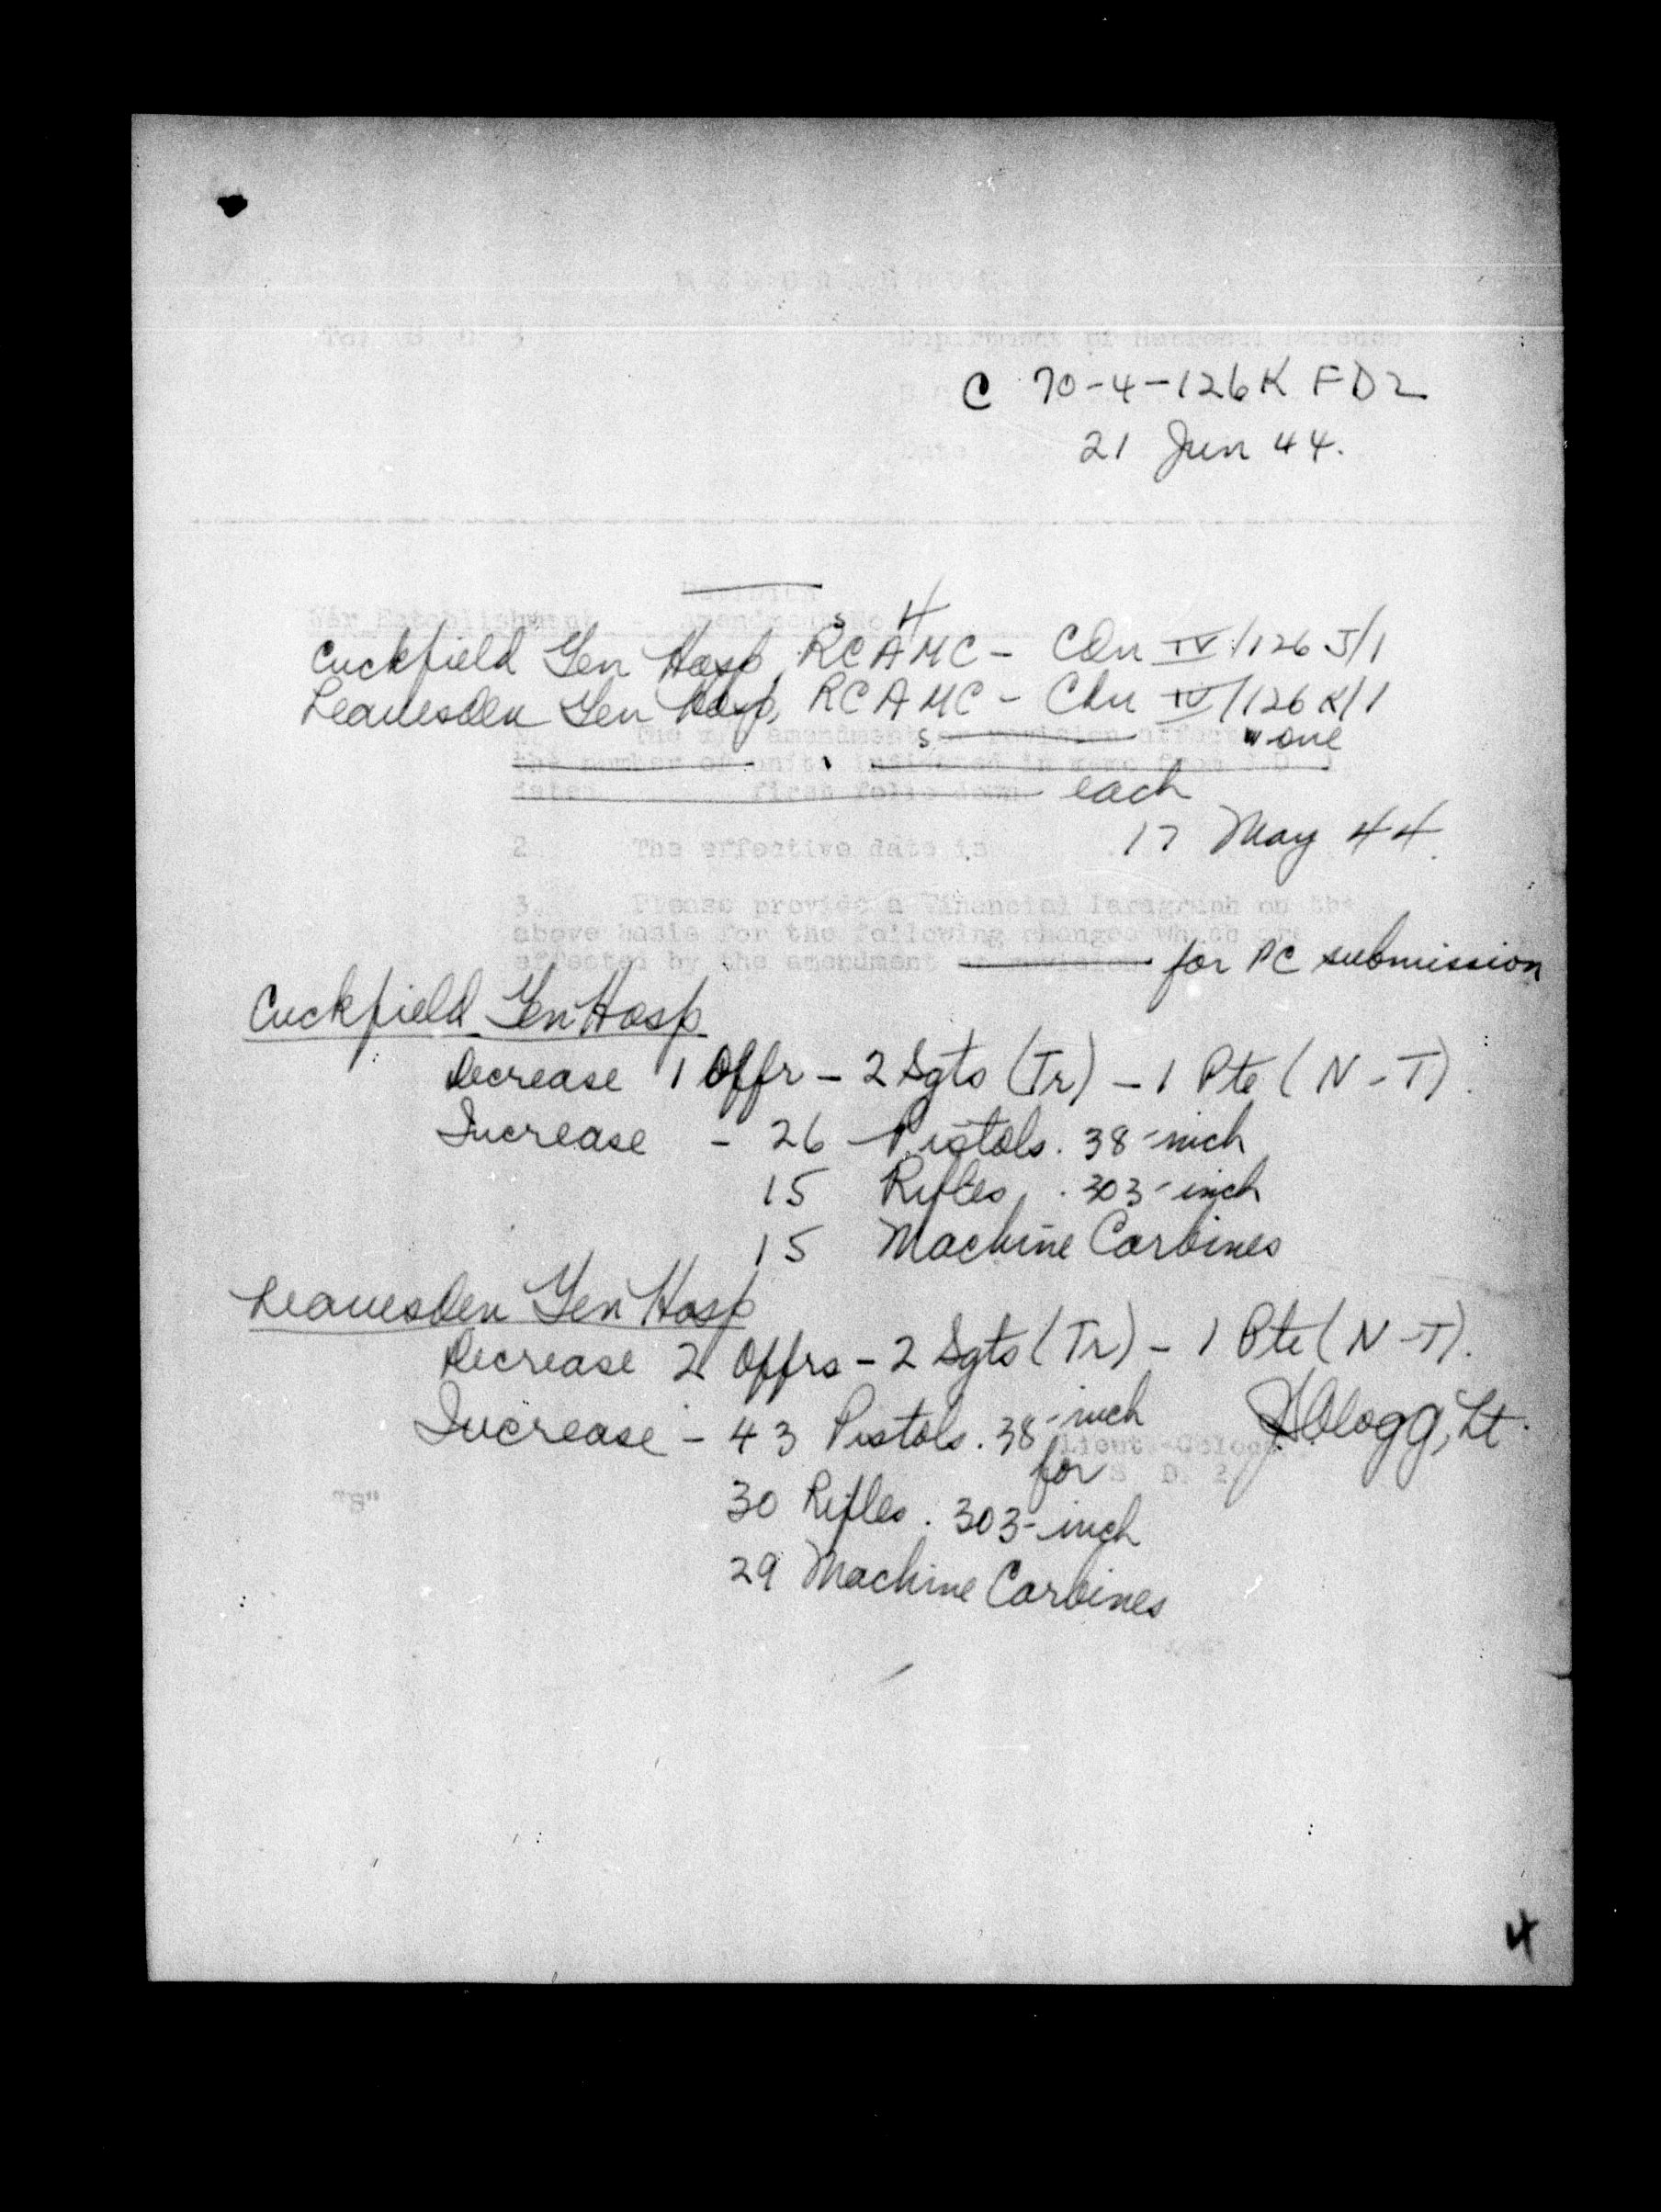 M E M O R A N D U M
To: S D 3 Department of National Defence
C 70-4-126K FD2
Date 21 Jun 44.
War Establishment Amendments No 4
Cuckfield Gen Hosp, RCAMC - Cdn IV/126 J/1
Leavesden Gen Hosp, RCAMC - Cdn IV/126 K/1
The amendments or revision affect one
the number of units indicated in memo from
dated first folio down each
2 The effective date is 17 May 44.
3. Please provide a Financial Paragraph on the
above basis for the following changes which are
effected by the amendment or revision for PC submission
Cuckfield Gen Hosp
Decrease 1 Offr - 2 Sgts (Tr) - 1 Pte (N-T).
Increase - 26 Pistols .38-inch
15 Rifles, .303-inch
15 Machine Carbines
Leavesden Gen Hosp
Decrease 2 Offrs - 2 Sgts (Tr) - 1 Pte (N-T).
Increase - 43 Pistols .38-inch
Lieut.-Colonel
for S. D. 2
30 Rifles .303-inch
29 Machine Carbines
4